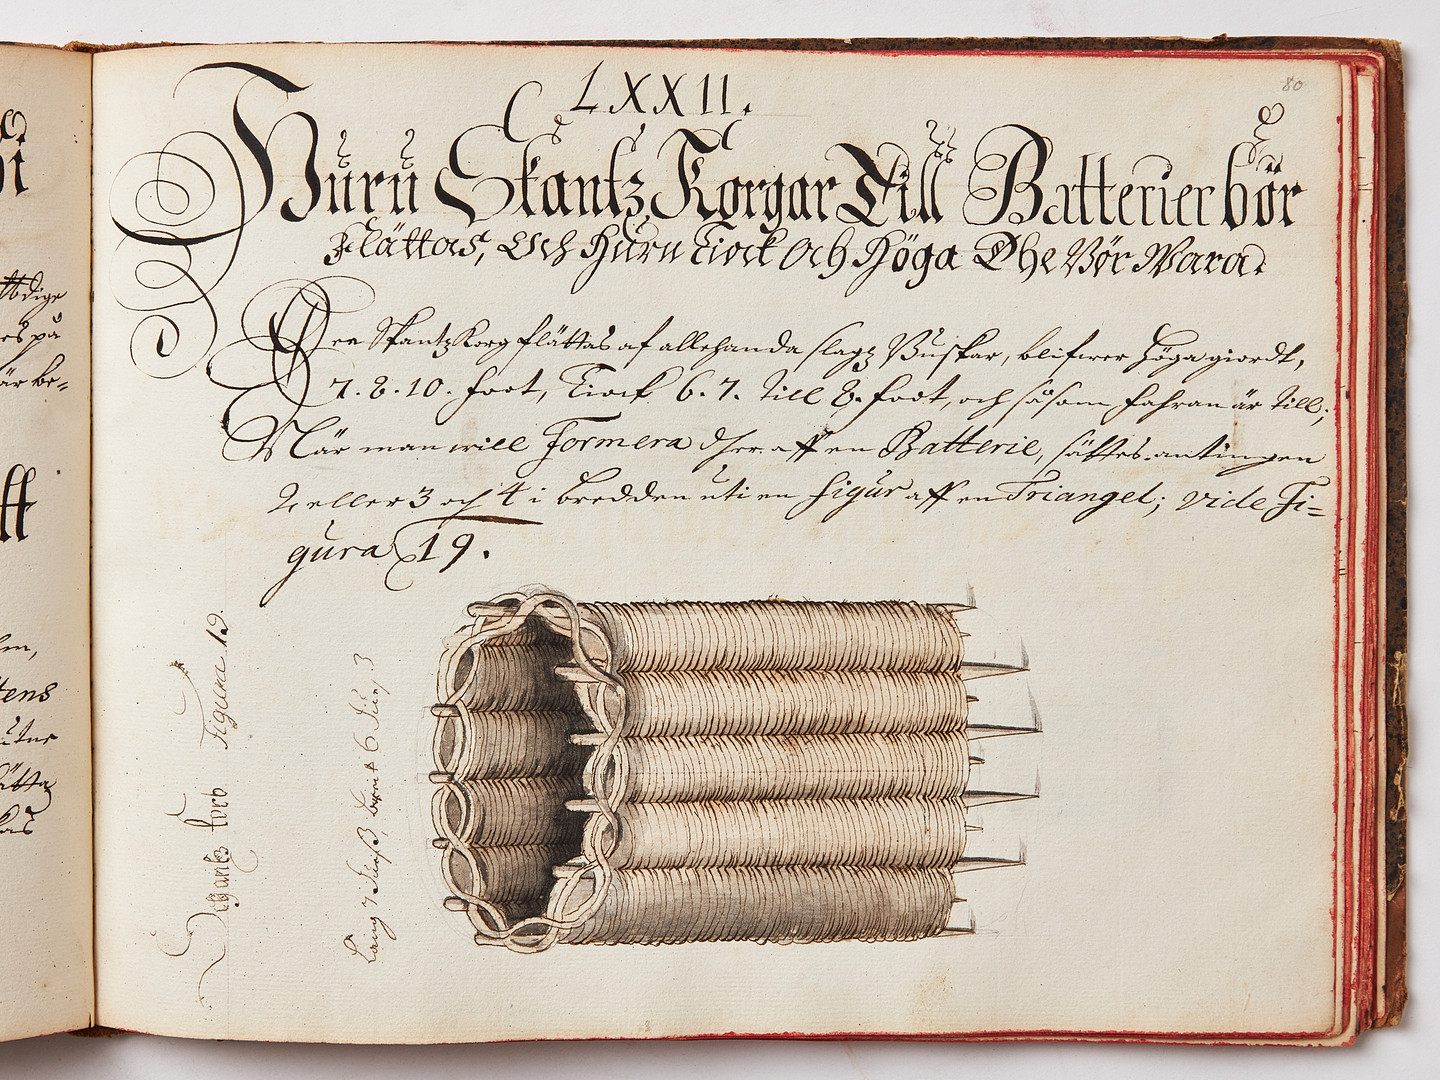 80
LXXII.
Huru Skantz Korgar Till Batterier bör
flättas, Och Huru Tiock och Höga Dhe Bör Wara.
Een Skantz Korg flättas af allehanda slagz Buskar, blifwer höga giordt,
7. 8. 10. foot, Tiock 6. 7. till 8. foot, och såsom fahran är till;
När man will Formera dher aff en Batterie, sättes antingen
2 eller 3 och 4 i bredden uti en figur aff en Triangel; vide Fi=
gura 19.
Schantz korb Figura 19.
Lang 7 Fuß, breit 6 Fuß 3
ttödige
es på
är be=
tens
ätta